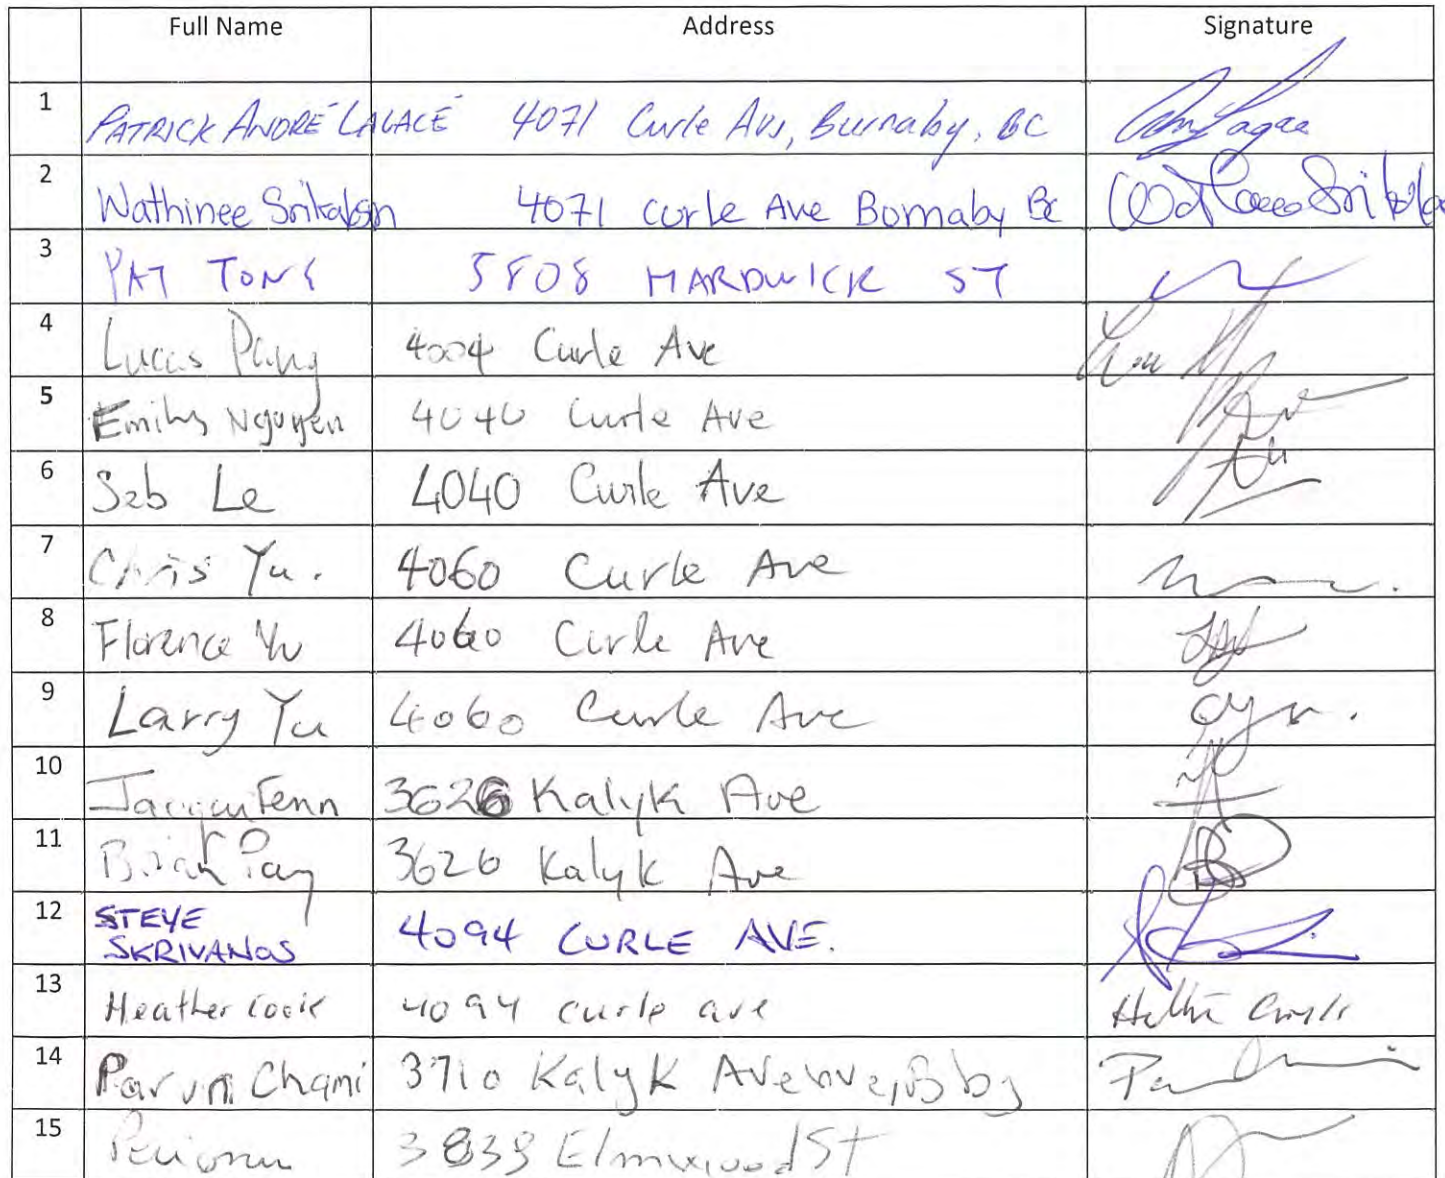 Full Name Address Signature
1 PATRICK ANDRÉ LAGACÉ 4071 Curle Ave, Burnaby, BC
2 Wathinee 4071 Curle Ave Burnaby BC
3 PAT TONG 5808 HARDWICK ST
4 Lucas Pang 4004 Curle Ave
5 Emily Nguyen 4040 Curle Ave
6 Seb Le 4040 Curle Ave
7 Chris Yu. 4060 Curle Ave
8 Florence Yu 4060 Curle Ave
9 Larry Yu 4060 Curle Ave
10 Jacqui Fenn 3626 Kalyk Ave
11 Brian 3626 Kalyk Ave
12 STEVE
SKRIVANOS 4094 CURLE AVE.
13 Heather Cook 4094 curle ave
14 Chami 3710 Kalyk Avenue, Bby
15 3838 Elmwood St